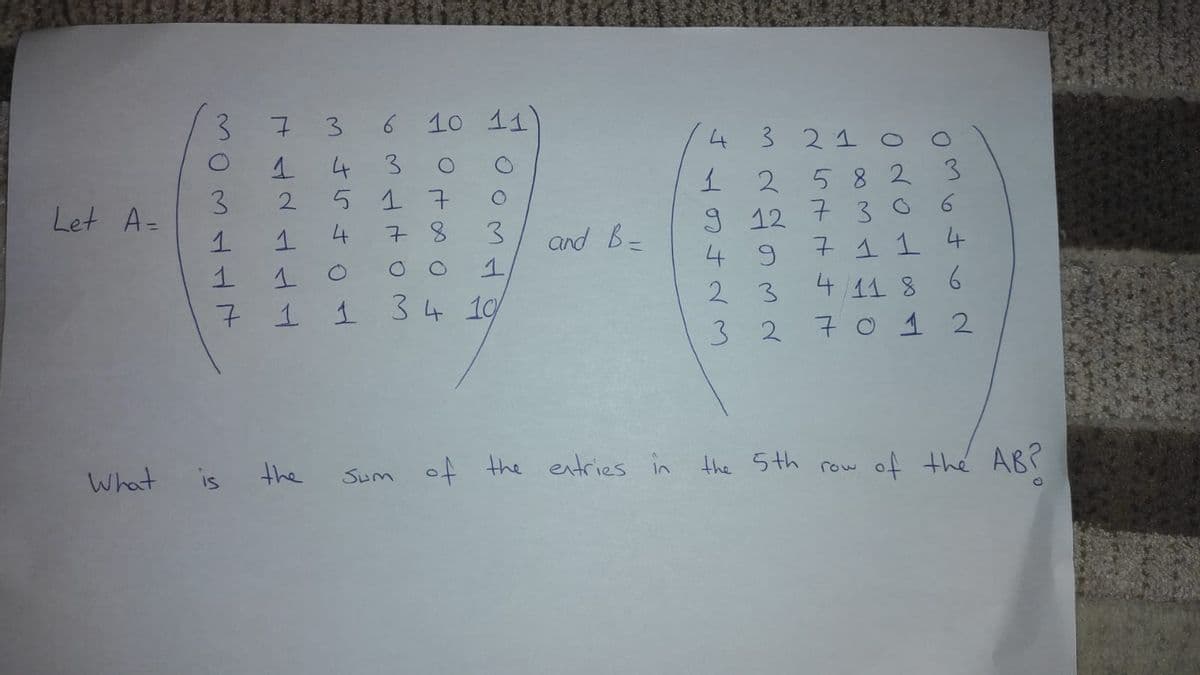 Let A = ( 3 7 3 6 10 11
0 1 4 3 0 0
3 2 5 1 7 0
1 1 4 7 8 3
1 1 0 0 0 1
7 1 1 3 4 10 )
and B = ( 4 3 2 1 0 0
1 2 5 8 2 3
9 12 7 3 0 6
4 9 7 1 1 4
2 3 4 11 8 6
3 2 7 0 1 2 )
What is the sum of the entries in the 5th row of the AB?